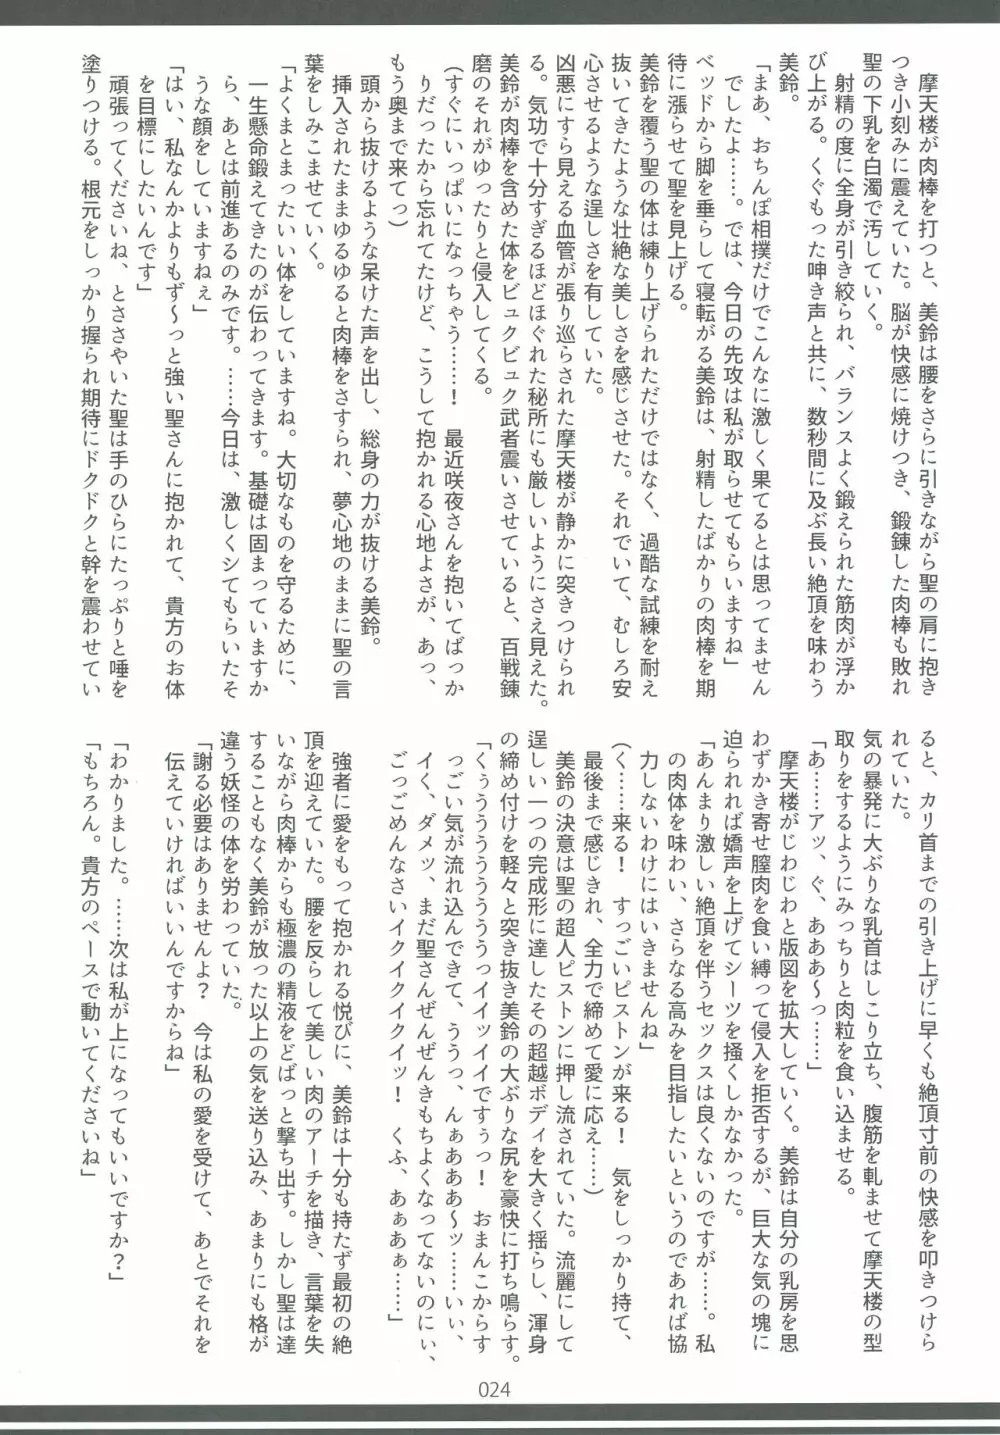 摩天楼が肉棒を打つと、美鈴は腰をさらに引きながら聖の肩に抱き
つき小刻みに震えていた。脳が快感に焼けつき、鍛錬した肉棒も敗れ
聖の下乳を白濁で汚していく。
射精の度に全身が引き絞られ、バランスよく鍛えられた筋肉が浮か
び上がる。くぐもった呻き声と共に、数秒間に及ぶ長い絶頂を味わう
美鈴。
「まあ、おちんぽ相撲だけでこんなに激しく果てるとは思ってません
でしたよ……。では、今日の先攻は私が取らせてもらいますね」
ベッドから脚を垂らして寝転がる美鈴は、射精したばかりの肉棒を期
待に漲らせて聖を見上げる。
美鈴を覆う聖の体は練り上げられただけではなく、過酷な試練を耐え
抜いてきたような壮絶な美しさを感じさせた。それでいて、むしろ安
心させるような逞しさを有していた。
凶悪にすら見える血管が張り巡らされた摩天楼が静かに突きつけられ
る。気功で十分すぎるほどほぐれた秘所にも厳しいようにさえ見えた。
美鈴が肉棒を含めた体をビュクビュク武者震いさせていると、百戦錬
磨のそれがゆったりと侵入してくる。
(すぐにいっぱいになっちゃう……！　最近咲夜さんを抱いてばっか
りだったから忘れてたけど、こうして抱かれる心地よさが、あっ、
もう奥まで来てっ)
頭から抜けるような呆けた声を出し、総身の力が抜ける美鈴。
挿入されたままゆるゆると肉棒をさすられ、夢心地のままに聖の言
葉をしみこませていく。
「よくまとまったいい体をしていますね。大切なものを守るために、
一生懸命鍛えてきたのが伝わってきます。基礎は固まっていますか
ら、あとは前進あるのみです。……今日は、激しくシてもらいたそ
うな顔をしていますねぇ」
「はい、私なんかよりもず～っと強い聖さんに抱かれて、貴方のお体
を目標にしたいんです」
頑張ってくださいね、とささやいた聖は手のひらにたっぷりと唾を
塗りつける。根元をしっかり握られ期待にドクドクと幹を震わせてい
ると、カリ首までの引き上げに早くも絶頂寸前の快感を叩きつけら
れていた。
気の暴発に大ぶりな乳首はしこり立ち、腹筋を軋ませて摩天楼の型
取りをするようにみっちりと肉粒を食い込ませる。
「あ……アッ、ぐ、あああ～っ……」
摩天楼がじわじわと版図を拡大していく。美鈴は自分の乳房を思
わずかき寄せ膣肉を食い縛って侵入を拒否するが、巨大な気の塊に
迫られれば嬌声を上げてシーツを掻くしかなかった。
「あんまり激しい絶頂を伴うセックスは良くないのですが……。私
の肉体を味わい、さらなる高みを目指したいというのであれば協
力しないわけにはいきませんね」
(く……来る！　すっごいピストンが来る！　気をしっかり持て、
最後まで感じきれ、全力で締めて愛に応え……)
美鈴の決意は聖の超人ピストンに押し流されていた。流麗にして
逞しい一つの完成形に達したその超越ボディを大きく揺らし、渾身
の締め付けを軽々と突き抜き美鈴の大ぶりな尻を豪快に打ち鳴らす。
「くぅうううううううううっイイッイイですぅっ！　おまんこからす
っごい気が流れ込んできて、ううっ、んぁあああ～ッ……いい、
イく、ダメッ、まだ聖さんぜんぜんきもちよくなってないのにぃ、
ごっごめんなさいイクイクイクイッ！　くふ、あぁあぁ……」
強者に愛をもって抱かれる悦びに、美鈴は十分も持たず最初の絶
頂を迎えていた。腰を反らして美しい肉のアーチを描き、言葉を失
いながら肉棒からも極濃の精液をどばっと撃ち出す。しかし聖は達
することもなく美鈴が放った以上の気を送り込み、あまりにも格が
違う妖怪の体を労わっていた。
「謝る必要はありませんよ？　今は私の愛を受けて、あとでそれを
伝えていければいいんですからね」
「わかりました。……次は私が上になってもいいですか？」
「もちろん。貴方のペースで動いてくださいね」
024